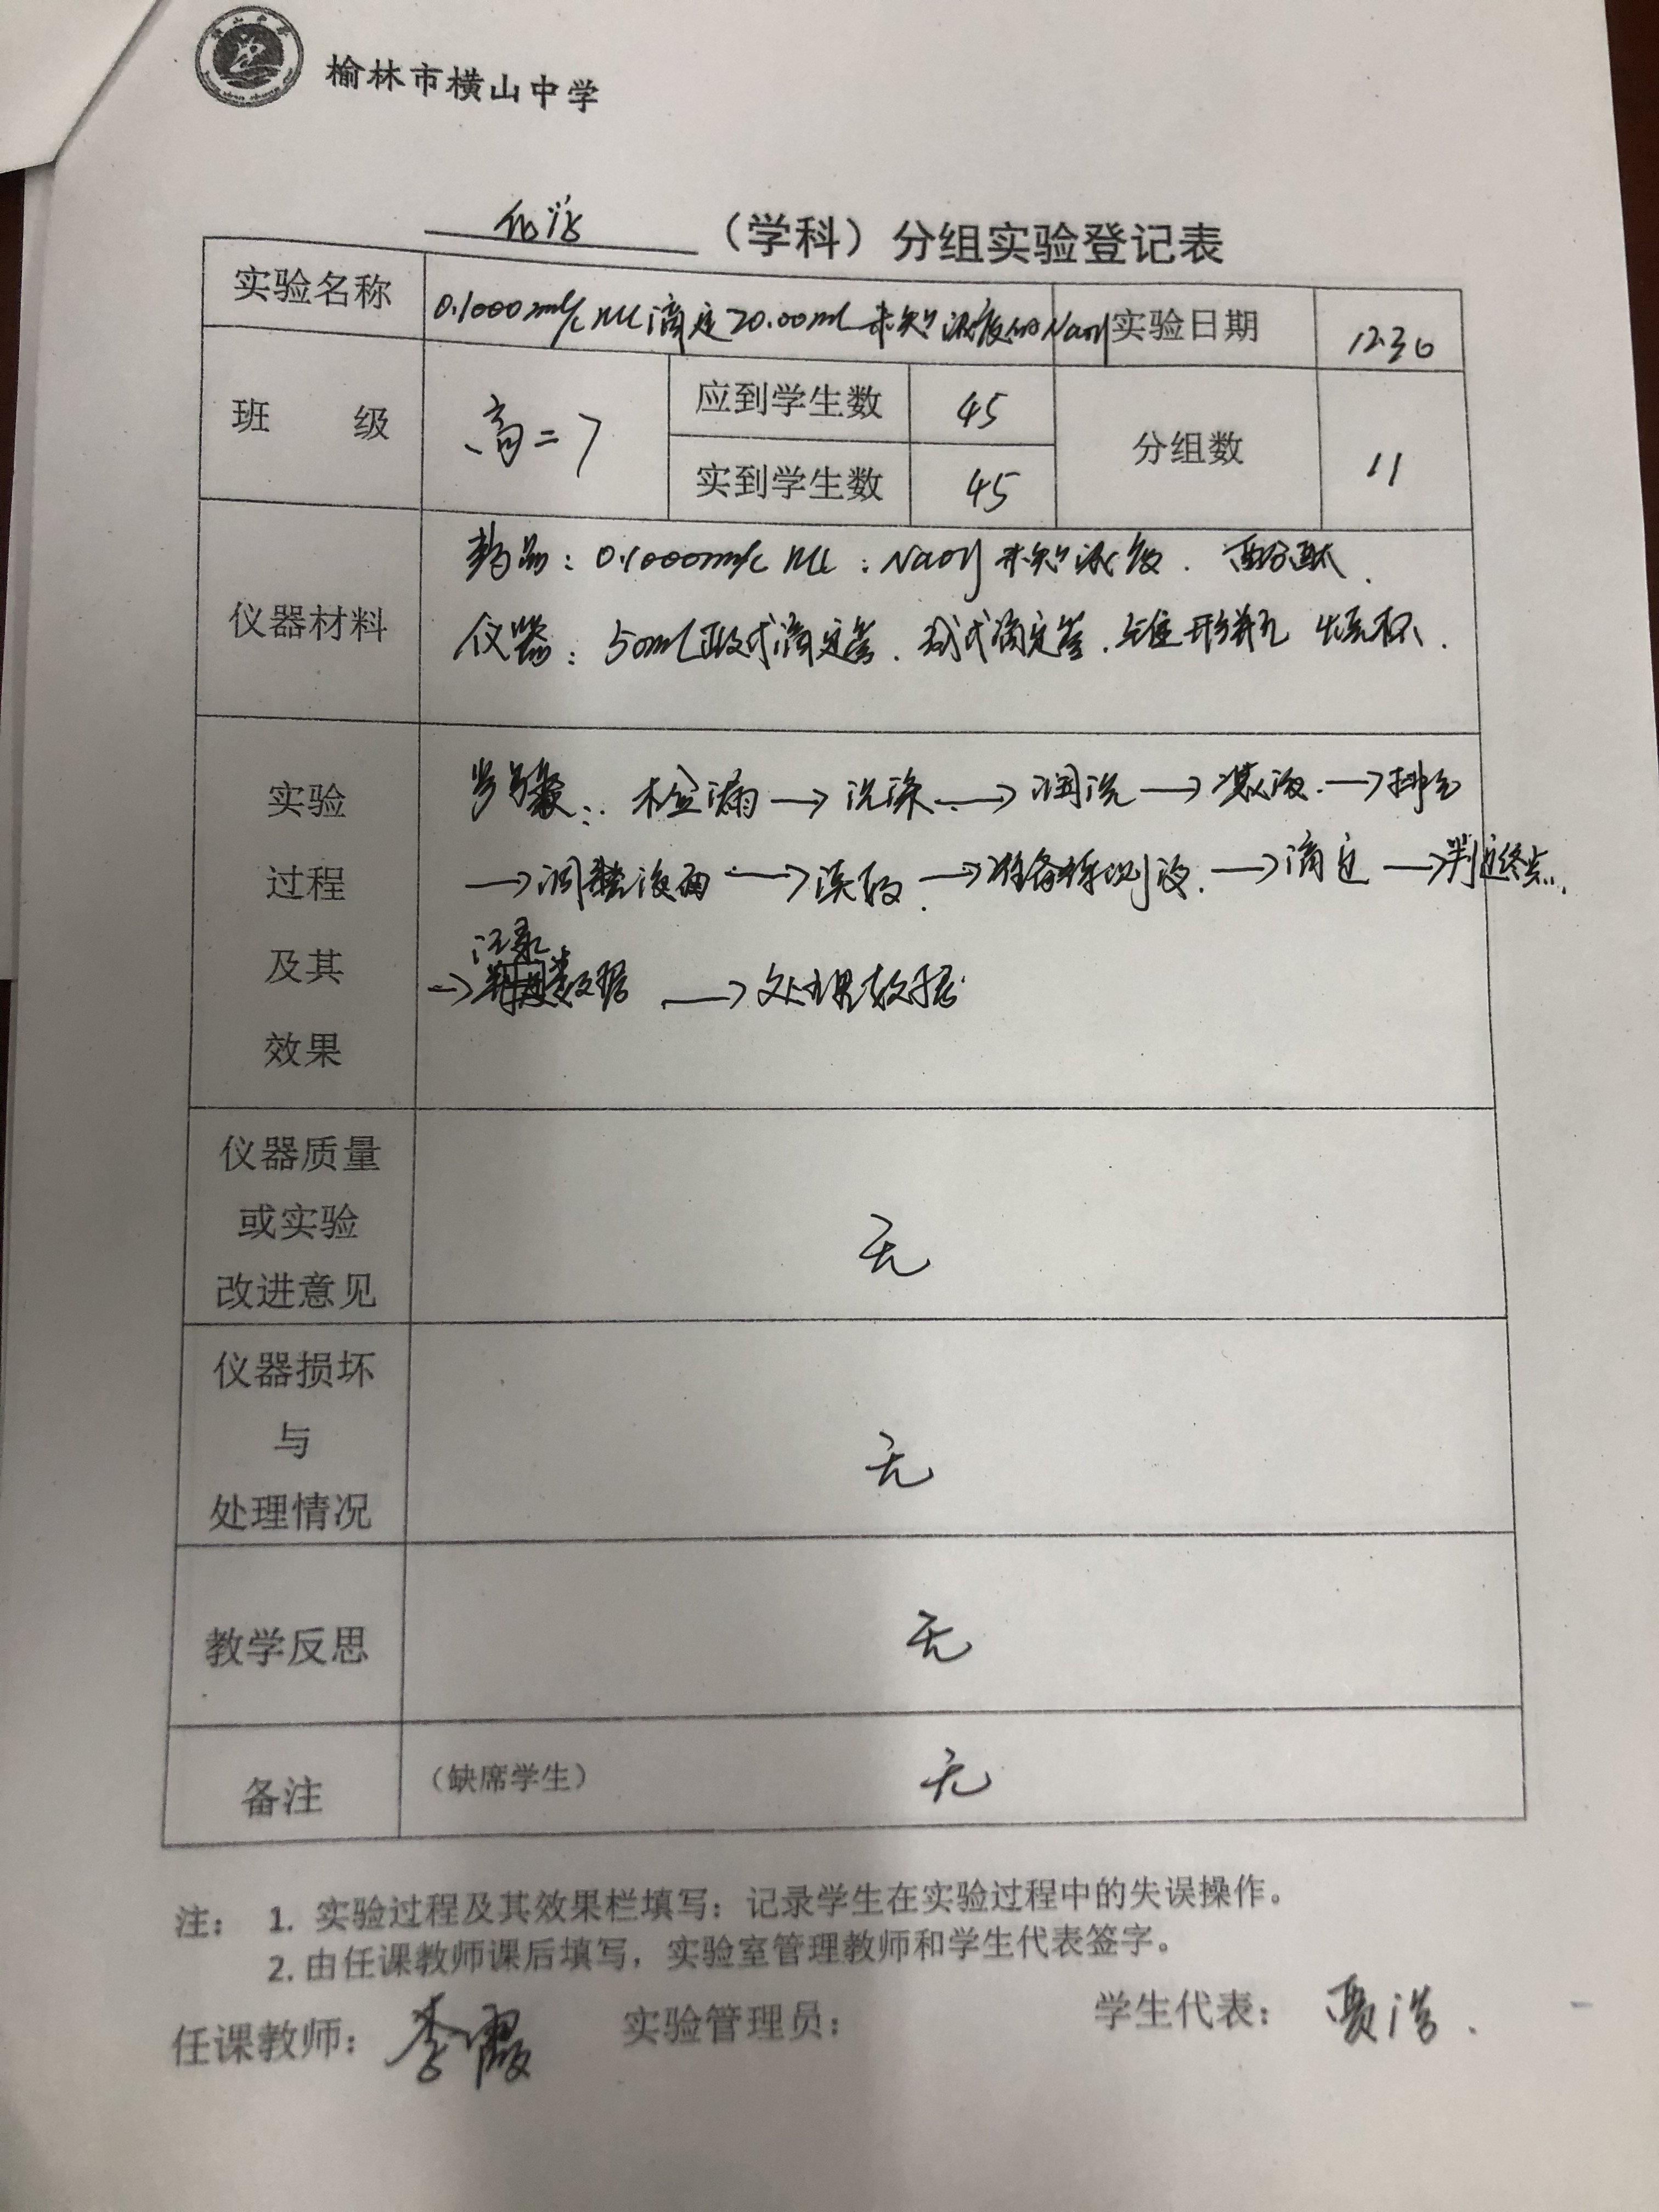 榆林市横山中学
化学 （学科）分组实验登记表
实验名称 0.1000mol/L HCl 滴定20.00ml 未知浓度的NaOH 实验日期 12.30
班 级 高二7 应到学生数 45 分组数 11
实到学生数 45
仪器材料
药品：0.1000mol/L HCl ：NaOH 未知浓度．酚酞．
仪器：50ml酸式滴定管．碱式滴定管．锥形瓶 烧杯．
实验
过程
及其
效果
步骤：检漏→洗涤→润洗→装液→排气
→调整液面→读数→准备待测液→滴定→判定终点．
记录
→数据→处理数据
仪器质量
或实验
改进意见
无
仪器损坏
与
处理情况
无
教学反思 无
备注 （缺席学生） 无
注： 1. 实验过程及其效果栏填写：记录学生在实验过程中的失误操作。
2. 由任课教师课后填写，实验室管理教师和学生代表签字。
任课教师：李霞 实验管理员： 学生代表：贾浩．